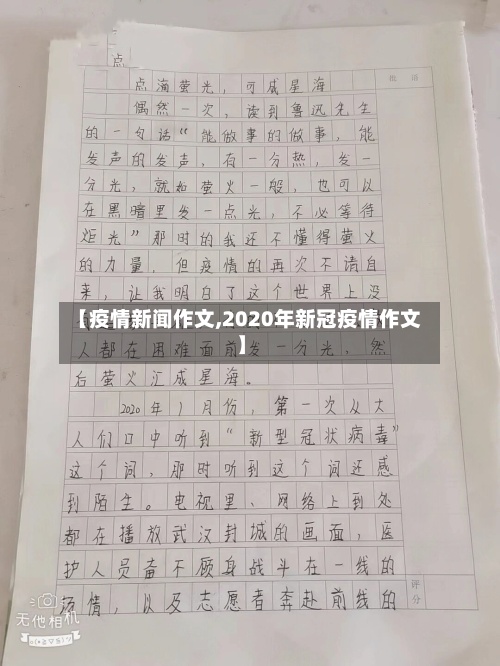 点
点滴萤光，可成星海
批语
偶然一次，读到鲁迅先生
的一句话“能做事的做事，能
发声的发声，有一分热，发一
分光，就如萤火一般，也可以
在黑暗里发一点光，不必等待
炬光”那时的我还不懂得萤火
的力量，但疫情的再次不请自
来，让我明白了这个世界上没
【疫情新闻作文,2020年新冠疫情作文
】
人都在困难面前发一分光，然
后萤火汇成星海。
2020年1月份，第一次从大
人们口中听到“新型冠状病毒”
这个词，那时听到这个词还感
到陌生。电视里、网络上到处
都在播放武汉封城的画面，医
护人员奋不顾身战斗在一线的
评分
情，以及志愿者奔赴前线的
无他相机